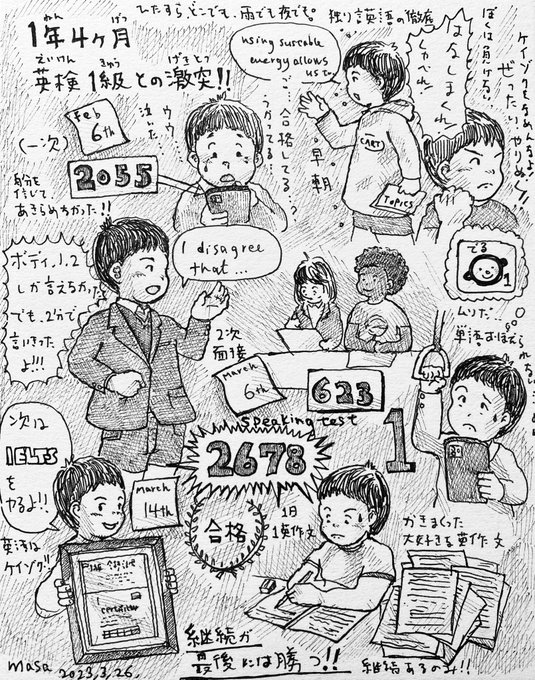 ひたすら、どこでも、雨でも夜でも。独り英語の徹底
1年4ヶ月
ねん
げつ
英検1級との激突!!
えいけん
きゅう
げきとつ
using
energy allows
us to
はなしまくれ
しゃべれ
ぼくは負けない
ケイゾクをなめんなよ!
ぜったいやりぬく!!
(一次)
Feb
6th
2055
泣いた
ウウ
自分を
信じて
あきらめなかった!!
合格してる…?
うかってる…
早朝
CARY
Topics
でる
1
ボディ1.2
しか言えなかった
でも、2分で
言いきった
よ!!!
I disagree
that...
2次
面接
March
6th
623
speaking test
ムリだ…
単語おぼえられない
1
2678
合格
次は
IELTS
を
やるよ!!
英語は
ケイゾク!!
March
14th
certificate
1日
1英作文
かきまくった
大好きな英作文
継続が
最後には勝つ!!
継続あるのみ!!
masa
2023.3.26.